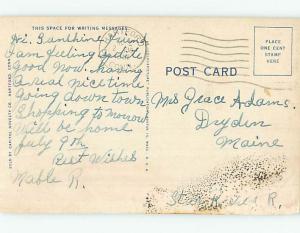 THIS SPACE FOR WRITING MESSAGES
Hi. Sunshine Friend
I am feeling quite
Good Now. having
a real nice time
Going down town
Shopping to morrow
Will be home
July 9th.
Best Wishes
Mable R.
POST CARD
PLACE
ONE CENT
STAMP
HERE
Mrs Grace Adams.
Dryden
Maine